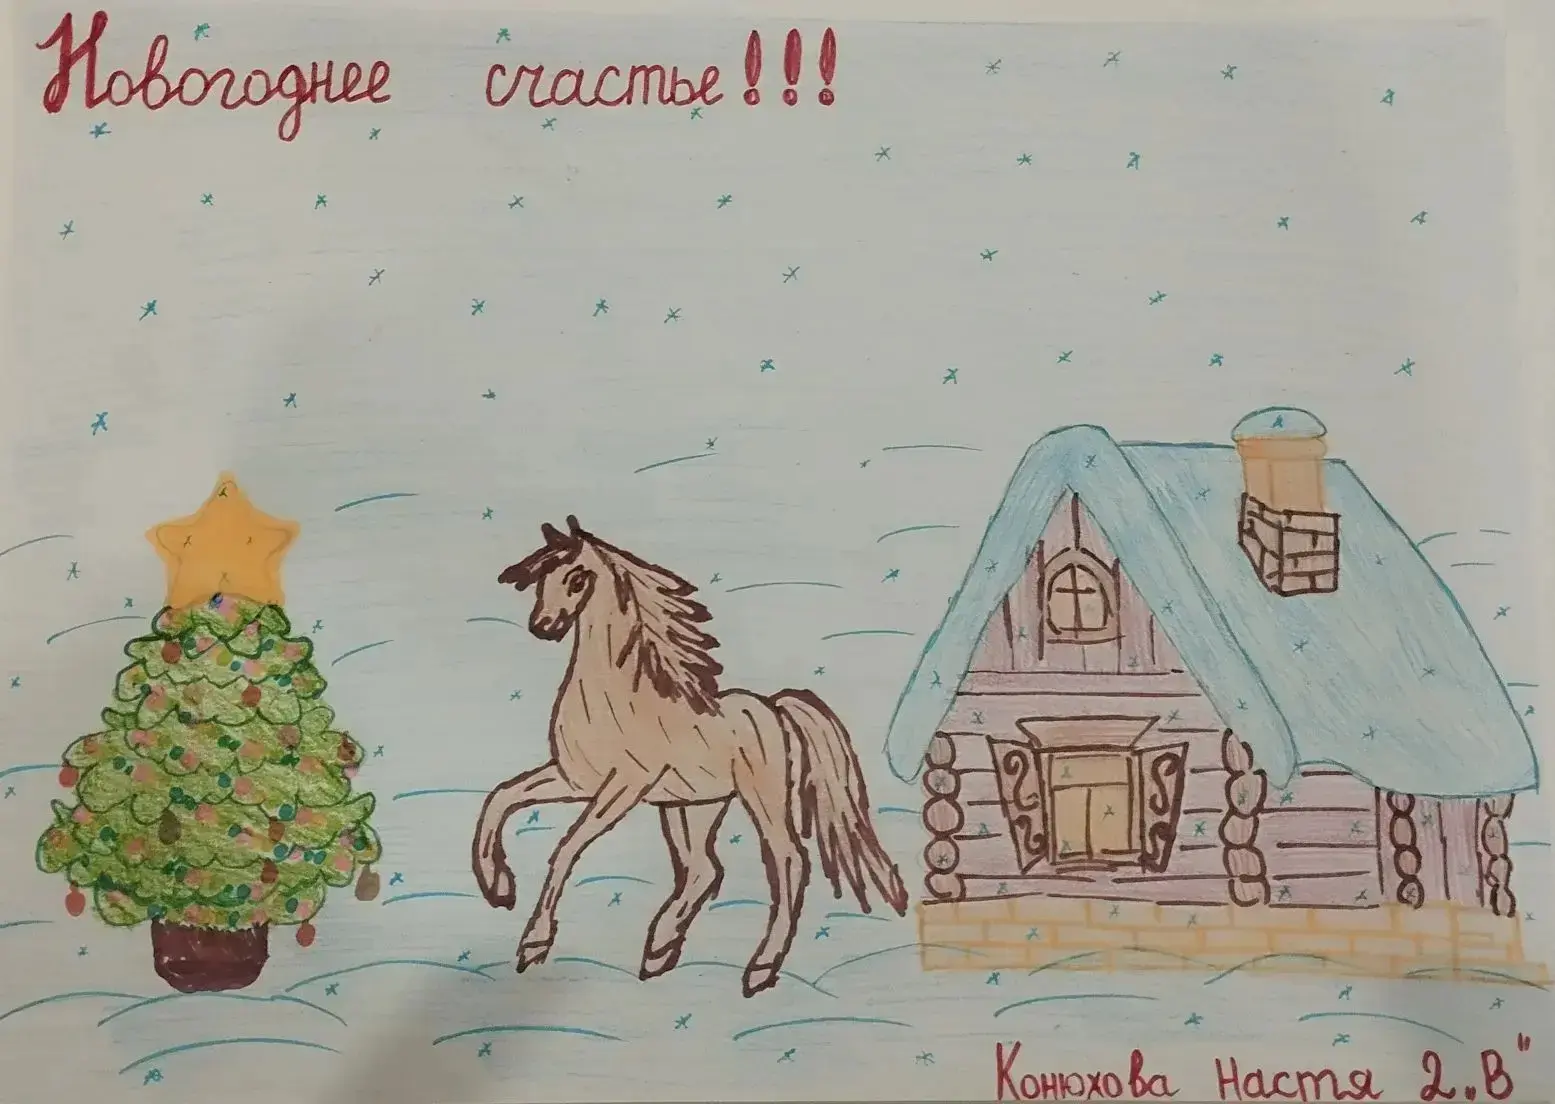 Новогоднее счастье!!!
Конюхова Настя 2„В"